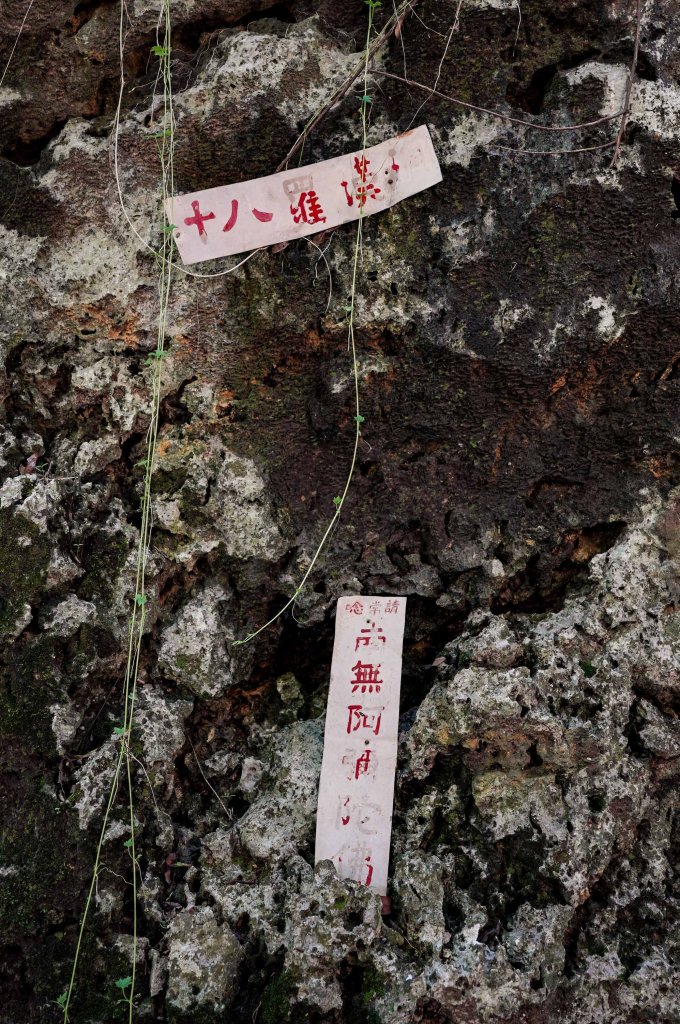 十八羅漢
請常唸
南無阿彌陀佛